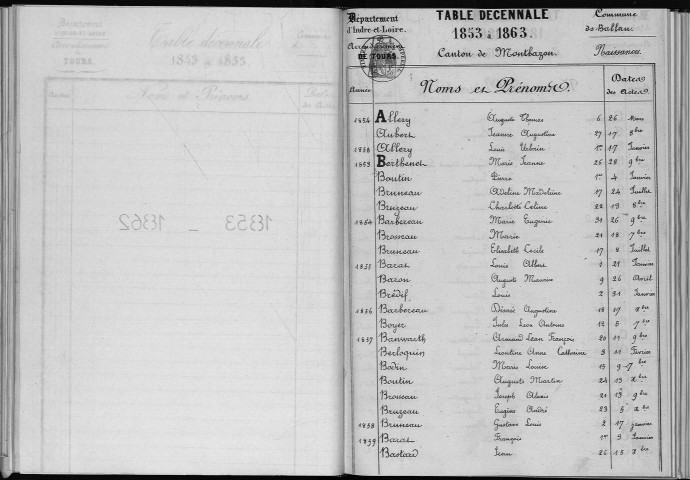 Département
d'Indre-et-Loire.
Arrondissement
DE TOURS
TABLE DÉCENNALE
1853 à 1863.
Canton de Montbazon.
Commune
de Ballan
Naissances
Année
Noms et Prénoms.
Dates des Actes
1854 Allery Auguste Thomas 6 26 Mars
Aubert Jeanne Augustine 27 17 8bre
1858 Allery Louis Urbain 1er 17 Janvier
1853 Berthenet Marie Jeanne 25 28 9bre
Boutin Pierre 1er 4 Janvier
Bruneau Adeline Madeleine 17 24 Juillet
Bruzeau Charlotte Celine 22 13 8bre
1854 Barbereau Marie Eugenie 31 26 9bre
Brosseau Marie 21 18 7bre
Bruneau Elisabeth Cecile 17 8 Juillet
1855 Baras Louis Albert 1 21 Janvier
Baron Auguste Maurice 9 26 Avril
Brédif Louis 2 31 Janvier
1856 Barbereau Désiré Augustine 18 17 8bre
Boyer Jules Leon Antoine 12 5 7bre
1857 Banwarth Armand Jean François 20 11 9bre
Berloquin Leontine Anne Catherine 3 11 Fevrier
Bodin Marie Louise 15 9 7bre
Boutin Auguste Martin 24 15 Xbre
Brosseau Joseph Alexis 21 13 9bre
Bruzeau Eugène André 23 5 Xbre
1858 Bruneau Gustave Louis 2 17 janvier
1859 Baras François 1er 3 Janvier
Bastard Jean 26 15 8bre
Département
Arrondissement
TOURS
Table décennale
1843 à 1853.
Noms et Prénoms
1853 - 1862